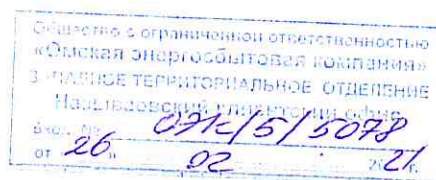 Общество с ограниченной ответственностью
«Омская энергосбытовая компания»
З-ПАДНОЕ ТЕРРИТОРИАЛЬНОЕ ОТДЕЛЕНИЕ
Называевский клиентский офис
Вход. № ОЭК/5/5078
от "26" 02 2021г.